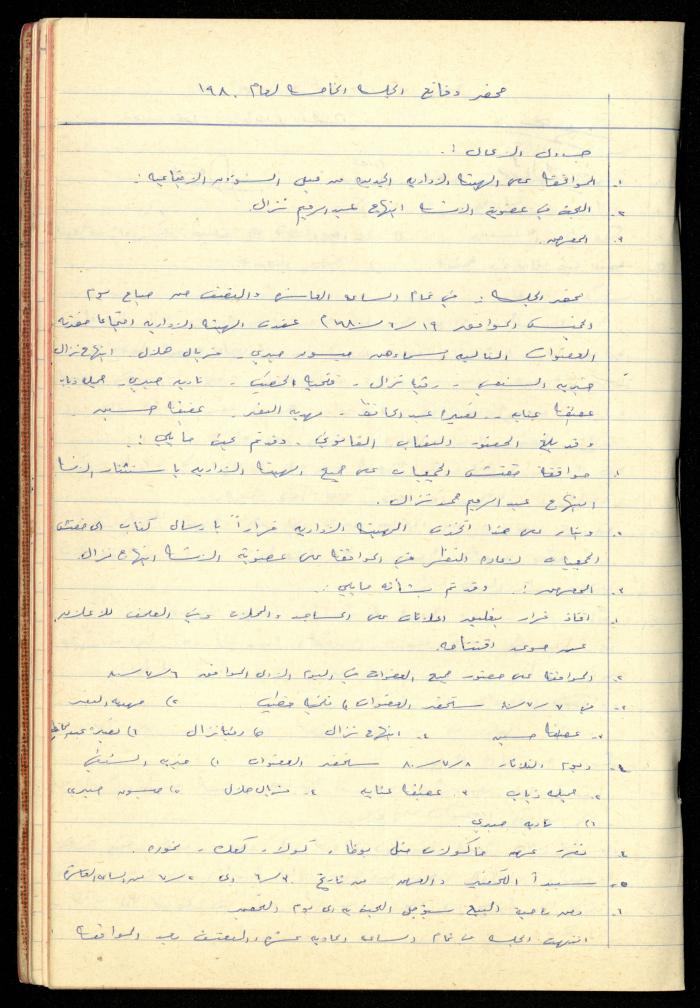 محضر وقائع الجلسة الخامسة لعام ١٩٨٠
جدول الاعمال :.
١. الموافقة على الهيئة الادارية الجديدة من قبل الشؤون الاجتماعية :
٢. البحث في عضوية الانسة ابتهاج عبد الرحيم نزال.
٣. المعرض.
محضر الجلسة :. في تمام الساعة العاشرة والنصف من صباح يوم
الخميس الموافق ١٩/٦/٩٨٠ عقدت الهيئة الادارية اجتماعا حضرته
العضوات التالية اسماءهن ميسون صبري - فريال هلال - ابتهاج نزال
خيرية السنيني - رقيا نزال - فتحية - نادية صبري - جميلة ذياب
عطيفة عناية - نصيرة عبد الحافظ - مهدية النمر - عفيفة حسين
وقد بلغ الحضور النصاب القانوني - وقد تم بحث ما يلي :.
١. موافقة مفتش الجمعيات على جميع الهيئة الادارية باستثناء الانسة
ابتهاج عبد الرحيم محمد نزال .
٢. وبناء على هذا اتخذت الهيئة الادارية قراراً بارسال كتاب الى مفتش
الجمعيات لاعادة النظر في الموافقة على عضوية الانسة ابتهاج نزال
٣. المعرض :. وقد تم بشأنه ما يلي :.
١. اتخاذ قرار بتعليق اعلانات على المساجد والمحلات وفي الصحف للاعلان
عن موعد افتتاحه.
٢. الموافقة على حضور جميع العضوات في اليوم الاول الموافق ٦/٧/٨٠
٣. في ٧/٧/٨٠ ستحضر العضوات ١) فتحية ٢) مهدية النمر
٣. عفيفة حسين ٤. ابتهاج نزال ٥) رقيا نزال ٦) نصيرة عبد الحافظ
٤. ويوم الثلاثاء ٨/٧/٨٠ ستحضر العضوات ١) خيرية السنيني
٢. جميلة ذياب ٣. عطيفة عناية ٤. فريال هلال ٥) ميسون صبري
٦) نادية صبري.
٤. تقرر عرض مأكولات مثل بوظة ، كولا ، كعك ، نمورة.
٥. سيبدأ التحضير والعمل من تاريخ ٢٠/٦ الى ٢/٧ من الساعة العاشرة
٦. ومن ناحية البيع سيؤجل البحث به الى يوم التحضير
انتهت الجلسة في تمام الساعة الحادية عشرة والنصف بعد الموافقة